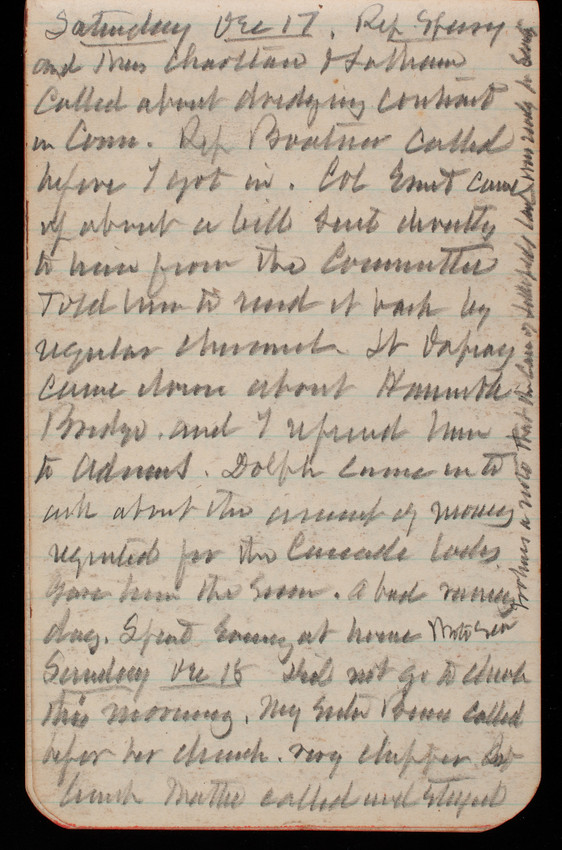 Saturday Dec 17. Rep Sperry
and Mess Charlton & Latham
Called about dredging contract
in Conn. Rep Boatner called
before I got in. Col Ernst came
up about a bill sent directly
to him from the Committee
Told him to send it back by
regular channel. Lt
came down about
Bridge. and I referred him
to Adams. Dolph came in to
ask about the amount of money
required for the Cascade Locks
gave him the same. A bad rainy
day. Spent Evening at home Wrote Gen
Sunday Dec 18 Did not go to church
this morning. My Sister called
before her church. very chipper
lunch Mattie called and stayed
a note that the case of was ready to